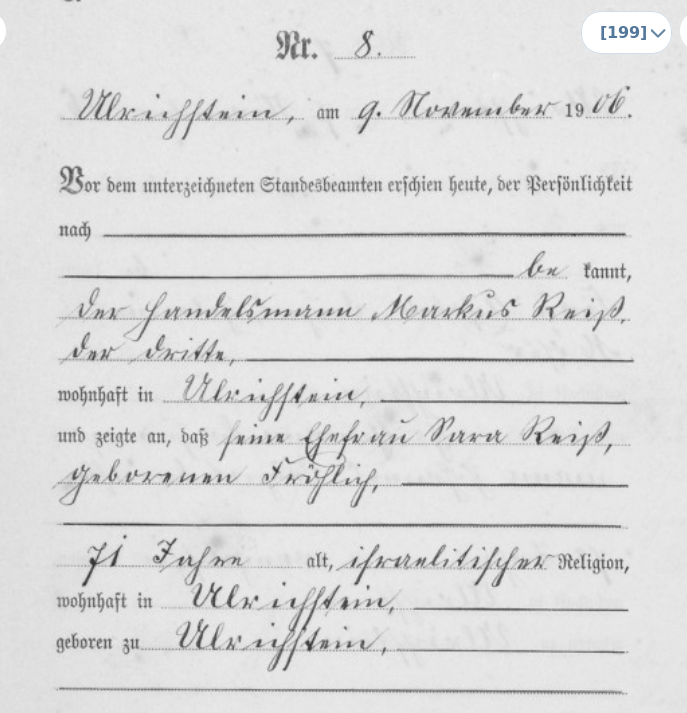 [199]
Nr. 8.
Ulrichstein, am 9. November 1906.
Vor dem unterzeichneten Standesbeamten erschien heute, der Persönlichkeit
nach
be kannt,
der Handelsmann Markus Reiß,
der dritte,
wohnhaft in Ulrichstein,
und zeigte an, daß seine Ehefrau Sara Reiß,
geborenen Fröhlich,
71 Jahre alt, israelitischer Religion,
wohnhaft in Ulrichstein,
geboren zu Ulrichstein,